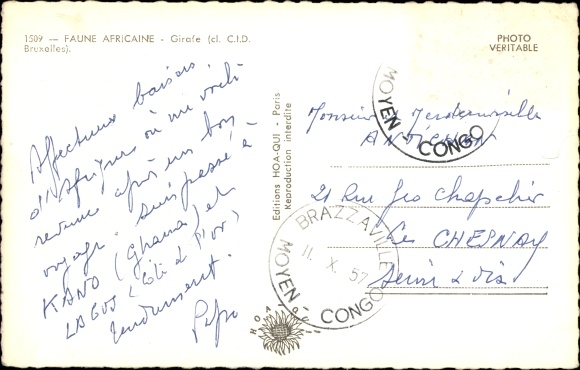 1509 — FAUNE AFRICAINE - Girafe (cl. C.I.D.
Bruxelles).
PHOTO
VERITABLE
Affectueux baisers
d'Afrique où me voilà
revenu après un bon
voyage. Suis passé à
KANO (Ghana) et
LAGOS (Côte d'or)
Tendrement.
Editions HOA-QUI - Paris
Reproduction interdite
Monsieur & Mesdemoiselle
21 Rue Geo Chapelier
Le CHESNAY
Seine & Oise
MOYEN - CONGO
BRAZZAVILLE
11. X. 57
MOYEN CONGO
HOA QUI